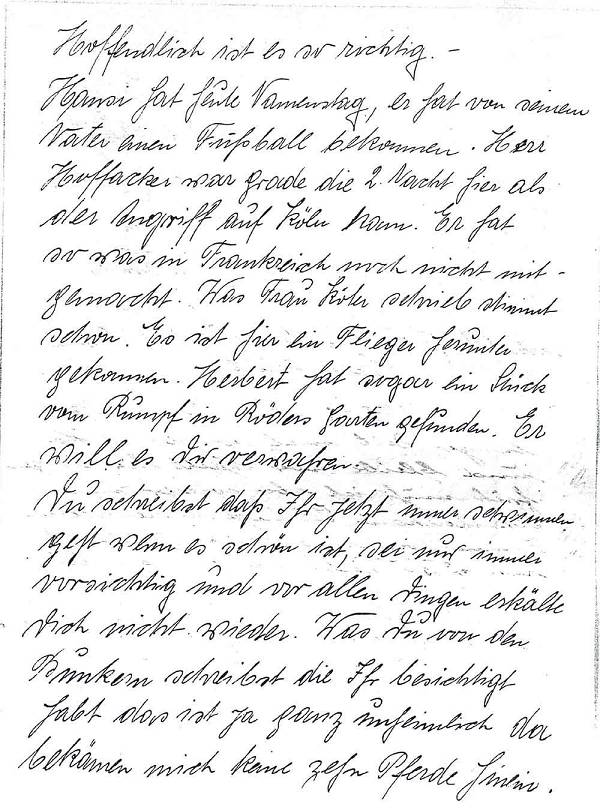 Hoffendlich ist es so richtig. -
Hansi hat heute Namenstag, er hat von seinem
Vater einen Fußball bekommen. Herr
Hoffacker war grade die 2. Nacht hier als
der Angriff auf Köln kam. Er hat
so was in Frankreich noch nicht mit-
gemacht. Was Frau Köler schrieb stimmt
schon. Es ist hier ein Flieger herunter
gekommen. Herbert hat sogar ein Stück
vom Rumpf in Röders Garten gefunden. Er
will es Dir verwahren
Du schreibst daß Ihr jetzt immer schwimmen
geht wenn es schön ist, sei nur immer
vorsichtig und vor allen Dingen erkälte
Dich nicht wieder. Was Du von den
Bunkern schreibst die Ihr besichtigt
habt das ist ja ganz unheimlich da
bekämen mich keine zehn Pferde hinein.